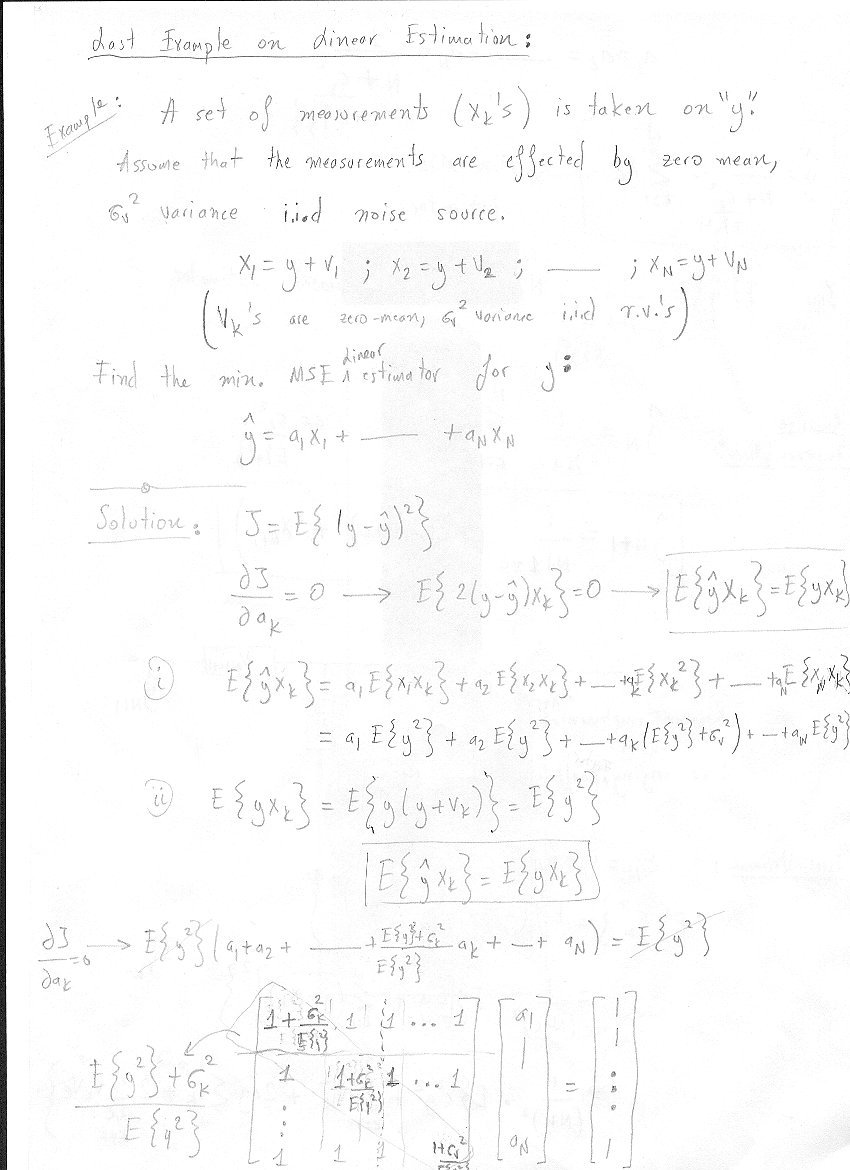 Last Example on Linear Estimation:
Example: A set of measurements (x_k's) is taken on "y".
Assume that the measurements are effected by zero mean,
σ_v² variance i.i.d noise source.
x_1 = y + v_1 ; x_2 = y + v_2 ; —— ; x_N = y + v_N
(v_k's are zero-mean, σ_v² variance i.i.d r.v.'s)
Find the min. MSE linear estimator for y:
ŷ = a_1 x_1 + —— + a_N x_N
Solution: J = E{(y-ŷ)²}
∂J/∂a_k = 0 → E{2(y-ŷ)x_k} = 0 → E{ŷx_k} = E{yx_k}
i E{ŷx_k} = a_1 E{x_1x_k} + a_2 E{x_2x_k} + — + a_k E{x_k²} + — + a_N E{x_N x_k}
= a_1 E{y²} + a_2 E{y²} + — + a_k (E{y²} + σ_v²) + — + a_N E{y²}
ii E{yx_k} = E{y(y+v_k)} = E{y²}
E{ŷx_k} = E{yx_k}
∂J/∂a_k = 0 → E{y²} (a_1 + a_2 + —— + (E{y²}+σ_k²)/E{y²} a_k + — + a_N) = E{y²}
[1 + σ_k²/E{y²} 1 1 ... 1] [a_1] [1]
(E{y²} + σ_k²)/E{y²} [1 1+σ_k²/E{y²} 1 ... 1] [|] = [|]
[⋮] [⋮]
[1 1 1 1+σ_v²/E{y²}] [a_N] [1]